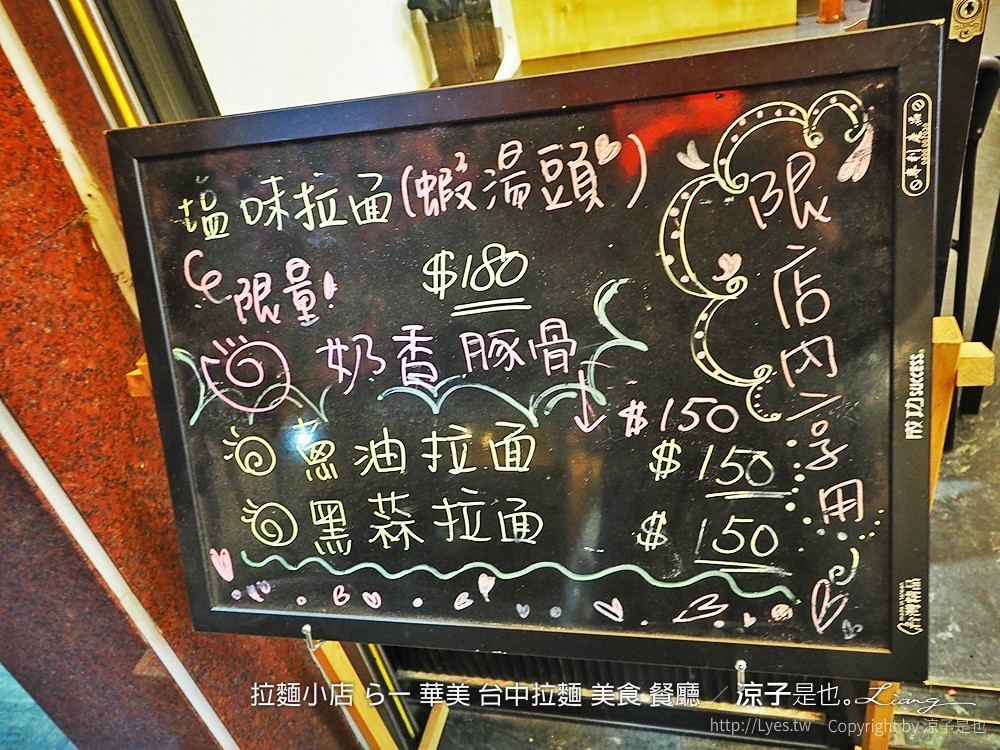 塩味拉面(蝦湯頭)
限量! $180
奶香豚骨
$150
蔥油拉面 $150
黑蒜拉面 $150
限店內享用
專利產品
成功success®
台灣精品
拉麵小店 らー 華美 台中拉麵 美食 餐廳 / 涼子是也。Liang
http://Lyes.tw Copyright by 涼子是也